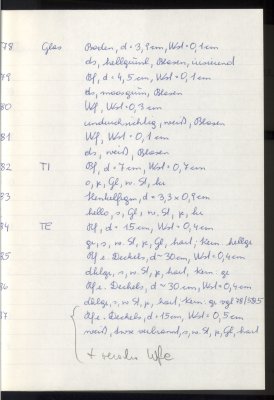 78 Glas Boden, d = 3,9 cm, Wst = 0,1 cm
ds, hellgrünl, Blasen, irisierend
79 Bf, d = 4,5 cm, Wst = 0,1 cm
ds, moosgrün, Blasen
80 Wf, Wst = 0,3 cm
undurchsichtig, weiß, Blasen
81 Wf, Wst = 0,1 cm
ds, weiß, Blasen
82 TI Bf, d = 7 cm, Wst = 0,7 cm
o, k, Gl, w. St, ha
83 Henkelfrgm, d = 3,3 x 0,9 cm
hello, s, Gl, w. St, k, ha
84 TE Rf, d = 15 cm, Wst = 0,4 cm
gr, s, w. St, k, Gl, hart, Kern. hellgr
85 Rf e. Deckels, d ~ 30 cm, Wst = 0,4 cm
dklgr, s, w. St, k, hart, Kern. gr
86 Rf e. Deckels, d ~ 30 cm, Wst = 0,4 cm
dklgr, s, w. St, k, hart, Kern. gr vgl 78/585
87 Rf e. Deckels, d = 15 cm, Wst = 0,5 cm
weiß, verbrannt, s, w. St, k, Gl, hart
+ Wfe